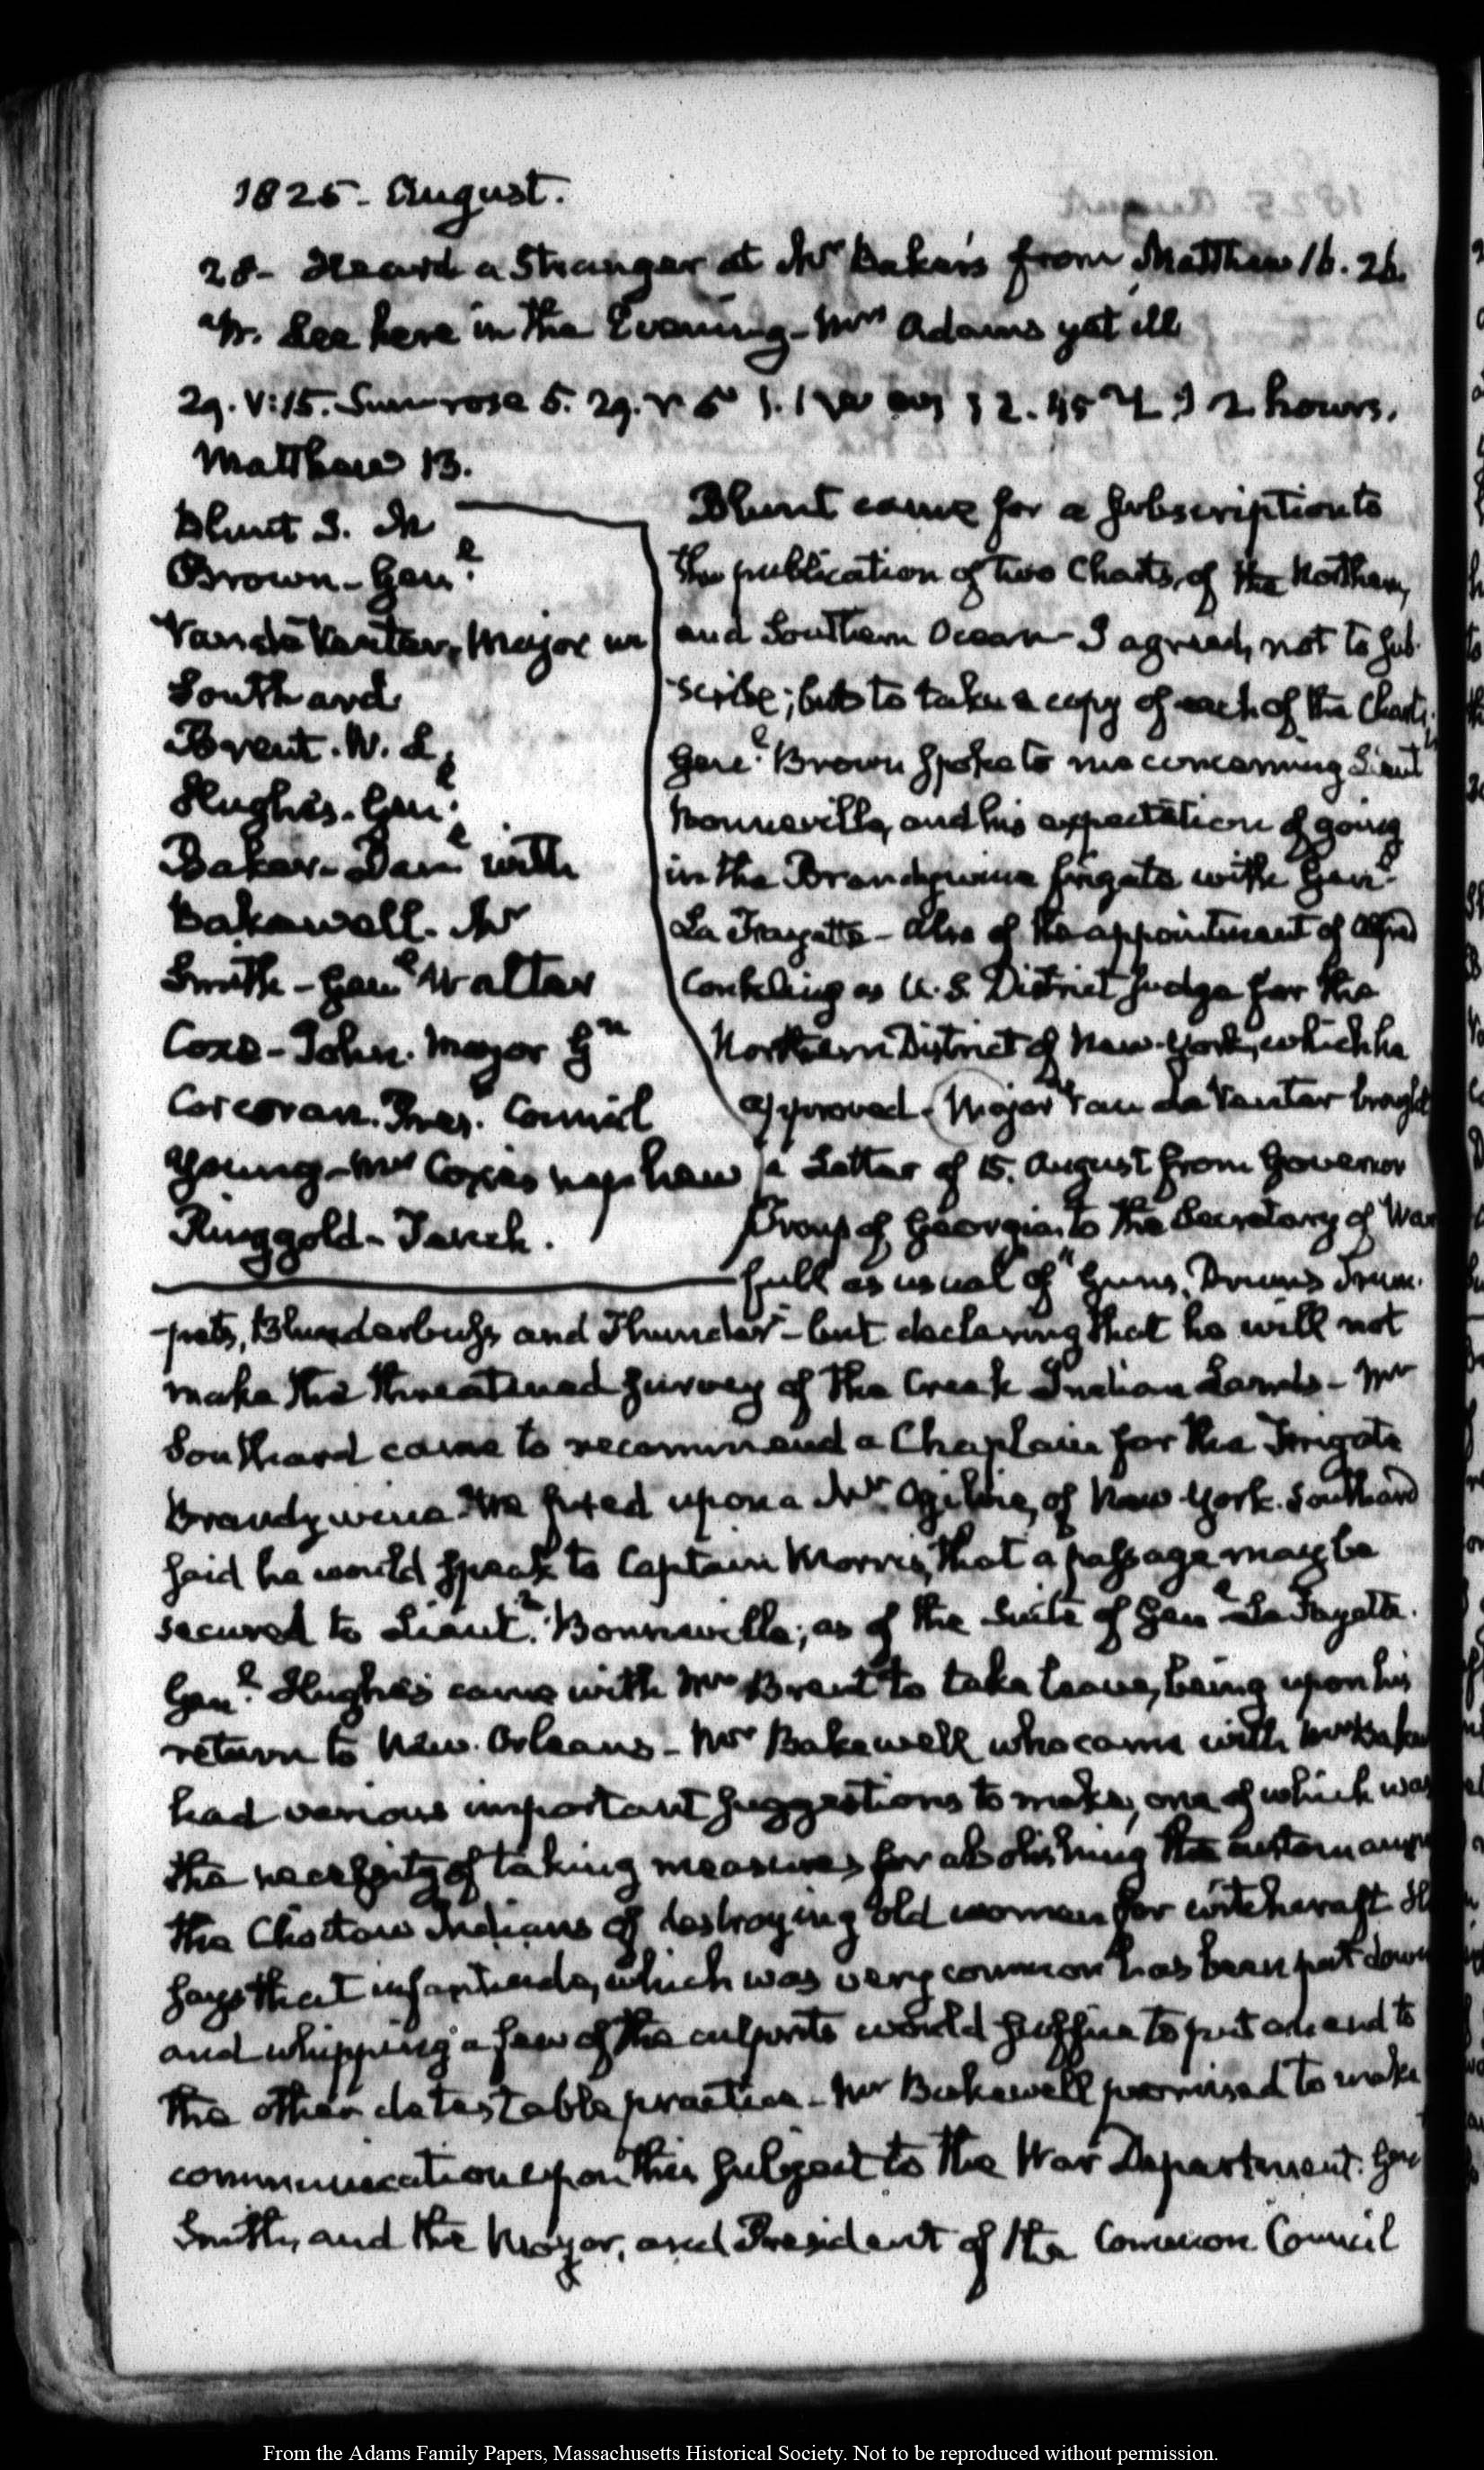 1825 - August.
28 - Heard a Stranger at Mr Baker's from Matthew 16. 26.
Mr. Lee here in the Evening - Mrs Adams yet ill
29. V:15. Sun rose 5. 29. 2 hours.
Matthew 13.
Blunt
Brown - Genl.
Van de Venter, Major
Southard
Brent. W. L.
Hughes. Genl.
Baker - Danl with
Bakewell. Mr
Smith - Genl Walter
Coxe - John. Mayor Gn
Corcoran. Pres. Council
Young - Mr Coxe's nephew
Ringgold - Tench.
Blunt came for a subscription to
the publication of two Charts, of the Northern,
and Southern Ocean - I agreed, not to sub-
scribe; but to take a copy of each of the Charts.
Genl. Brown spoke to me concerning Lieutt
Bonneville, and his expectation of going
in the Brandywine frigate with Genl.
La Fayette - Also of the appointment of Alfred
Conkling as U.S. District Judge for the
Northern District of New-York, which he
approved. Major Van de Venter brought
a Letter of 15. August from Governor
Troup of Georgia, to the Secretary of War
full as usual of "Guns, Drums Trum-
pets, Blunderbuss and Thunder" - but declaring that he will not
make the threatened survey of the Creek Indian Lands - Mr
Southard came to recommend a Chaplain for the Frigate
Brandywine. We fixed upon a Mr. Ogilvie, of New-York. Southard
said he would speak to Captain Morris, that a passage may be
secured to Lieutt. Bonneville, as of the Suite of Genl La Fayette.
Genl. Hughes came with Mr Brent to take leave, being upon his
return to New-Orleans - Mr Bakewell who came with Mr Baker
had various important suggestions to make, one of which was
the necessity of taking measures for abolishing the custom among
the Choctaw Indians of destroying old women for witchcraft He
says that infanticide, which was very common has been put down
and whipping a few of the culprits would suffice to put an end to
the other detestable practice - Mr Bakewell promised to make
communication upon this subject to the War Department. Genl
Smith, and the Mayor, and President of the Common Council
From the Adams Family Papers, Massachusetts Historical Society. Not to be reproduced without permission.